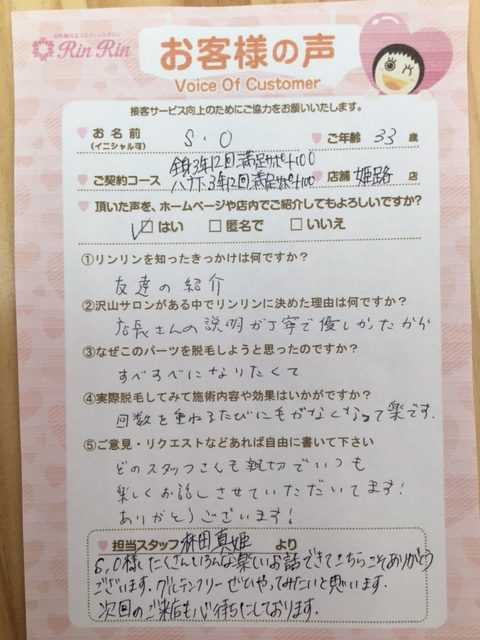 Rin Rin
お客様の声
Voice Of Customer
接客サービス向上のためにご協力をお願いいたします。
お名前
(イニシャル可)
S.O
ご年齢 33 歳
ご契約コース
全身3年12回満足サポート100
ハナ下3年12回満足サポート100
店舗 姫路 店
頂いた声を、ホームページや店内でご紹介してもよろしいですか?
☑はい □匿名で □いいえ
①リンリンを知ったきっかけは何ですか?
友達の紹介
②沢山サロンがある中でリンリンに決めた理由は何ですか?
店長さんの説明が丁寧で優しかったから
③なぜこのパーツを脱毛しようと思ったのですか?
すべすべになりたくて
④実際脱毛してみて施術内容や効果はいかがですか?
回数を重ねるたびに毛がなくなって楽です。
⑤ご意見・リクエストなどあれば自由に書いて下さい
どのスタッフさんも親切でいつも
楽しくお話しさせていただいてます!
ありがとうございます!
担当スタッフ 林田真姫 より
S.O様 たくさんいろんな楽しいお話できてこちらこそありがとう
ございます。グルテンフリーぜひやってみたいと思います。
次回のご来店も心待ちにしております。